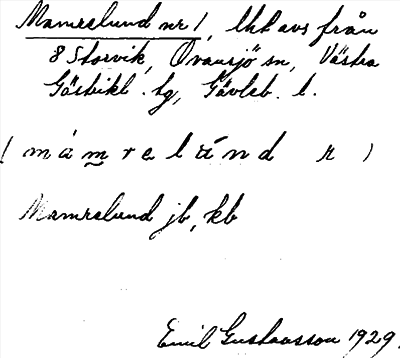 Mamrelund nr 1, lht avs från
8 Storvik, Ovansjö sn, Västra
Gästrikl. tg, Gävleb. l.
( m á m r e l ú n d r )
Mamrelund jb, kb
Emil Gustavsson 1929.